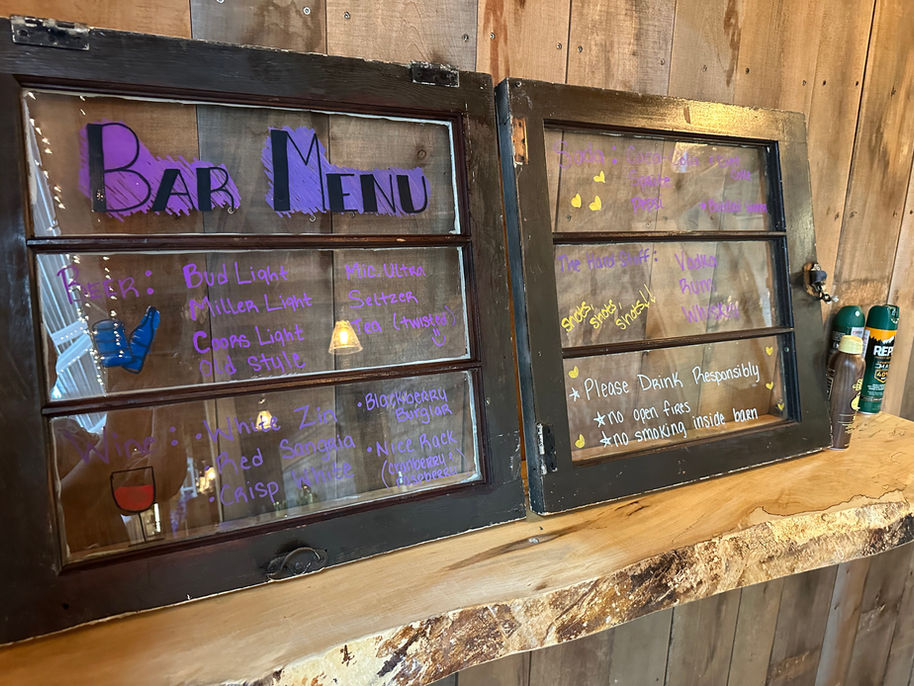 BAR MENU
BEER: Bud Light Mic Ultra
Miller Light Seltzer
Coors Light Tea (twisted)
Old Style
Wine: • White Zin • Blackberry Burglar
• Red Sangria • Nice Rack
• Crisp White (cranberry &
The Hard Stuff: Vodka
Rum
Whiskey
shots, shots, shots!!
★Please Drink Responsibly
★no open fires
★no smoking inside barn
REP